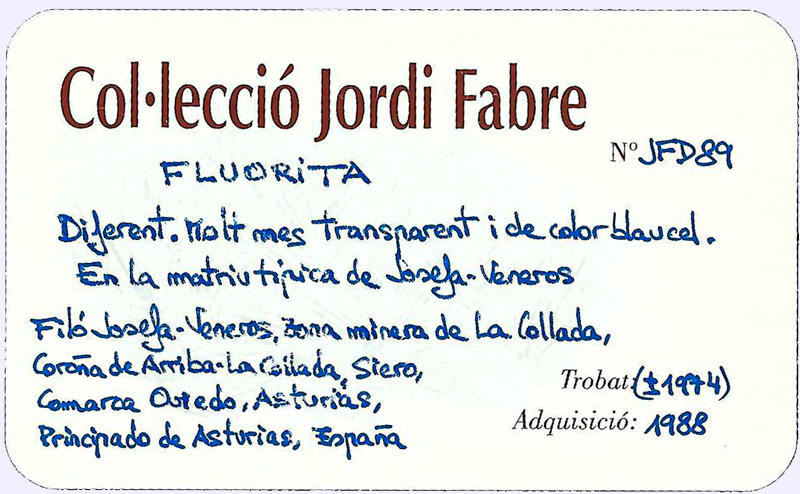 Col·lecció Jordi Fabre
Nº JFD89
FLUORITA
Diferent. Molt mes transparent i de color blau cel.
En la matriu típica de Josefa-Veneros
Filó Josefa-Veneros, zona minera de La Collada,
Coroña de Arriba-La Collada, Siero,
Comarca Oviedo, Asturias,
Principado de Asturias, España
Trobat: (±1974)
Adquisició: 1988